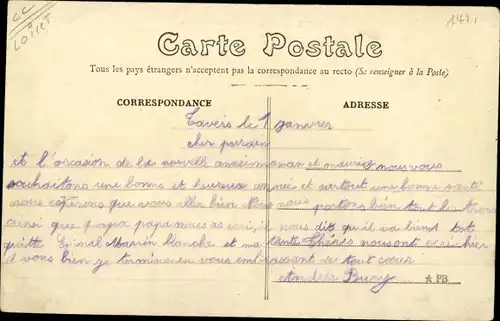 45
LOIRET
Carte Postale
Tous les pays étrangers n'acceptent pas la correspondance au recto (Se renseigner à la Poste)
CORRESPONDANCE
ADRESSE
Tavers le 1 janvier
cher parrain
et l'occasion de la nouvelle année maman et mauriz nous vous
souhaitons une bonne et heureux année et surtout une bonne santé
nous espérons que vous allez bien Nous nous portons bien tout les trois
ainsi que papa papa nous as écri il nous dit qu'il va bientot
quitté Epinal blanche et ma tante Thérès nous ont ecri hier
il vons bien je termine en vous embrassant de tout cœur
Andréa Bury
★ PB